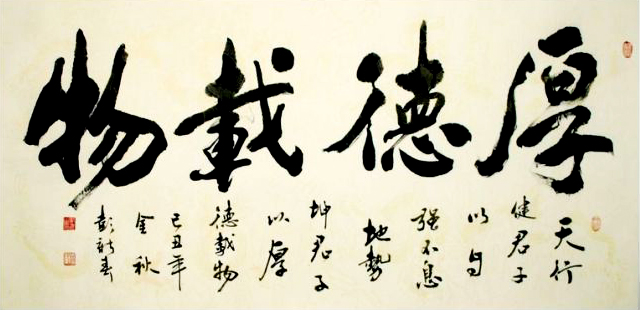 厚德載物
天行
健君子
以自
强不息
地勢
坤君子
以厚
德載物
己丑年
金秋
彭新春